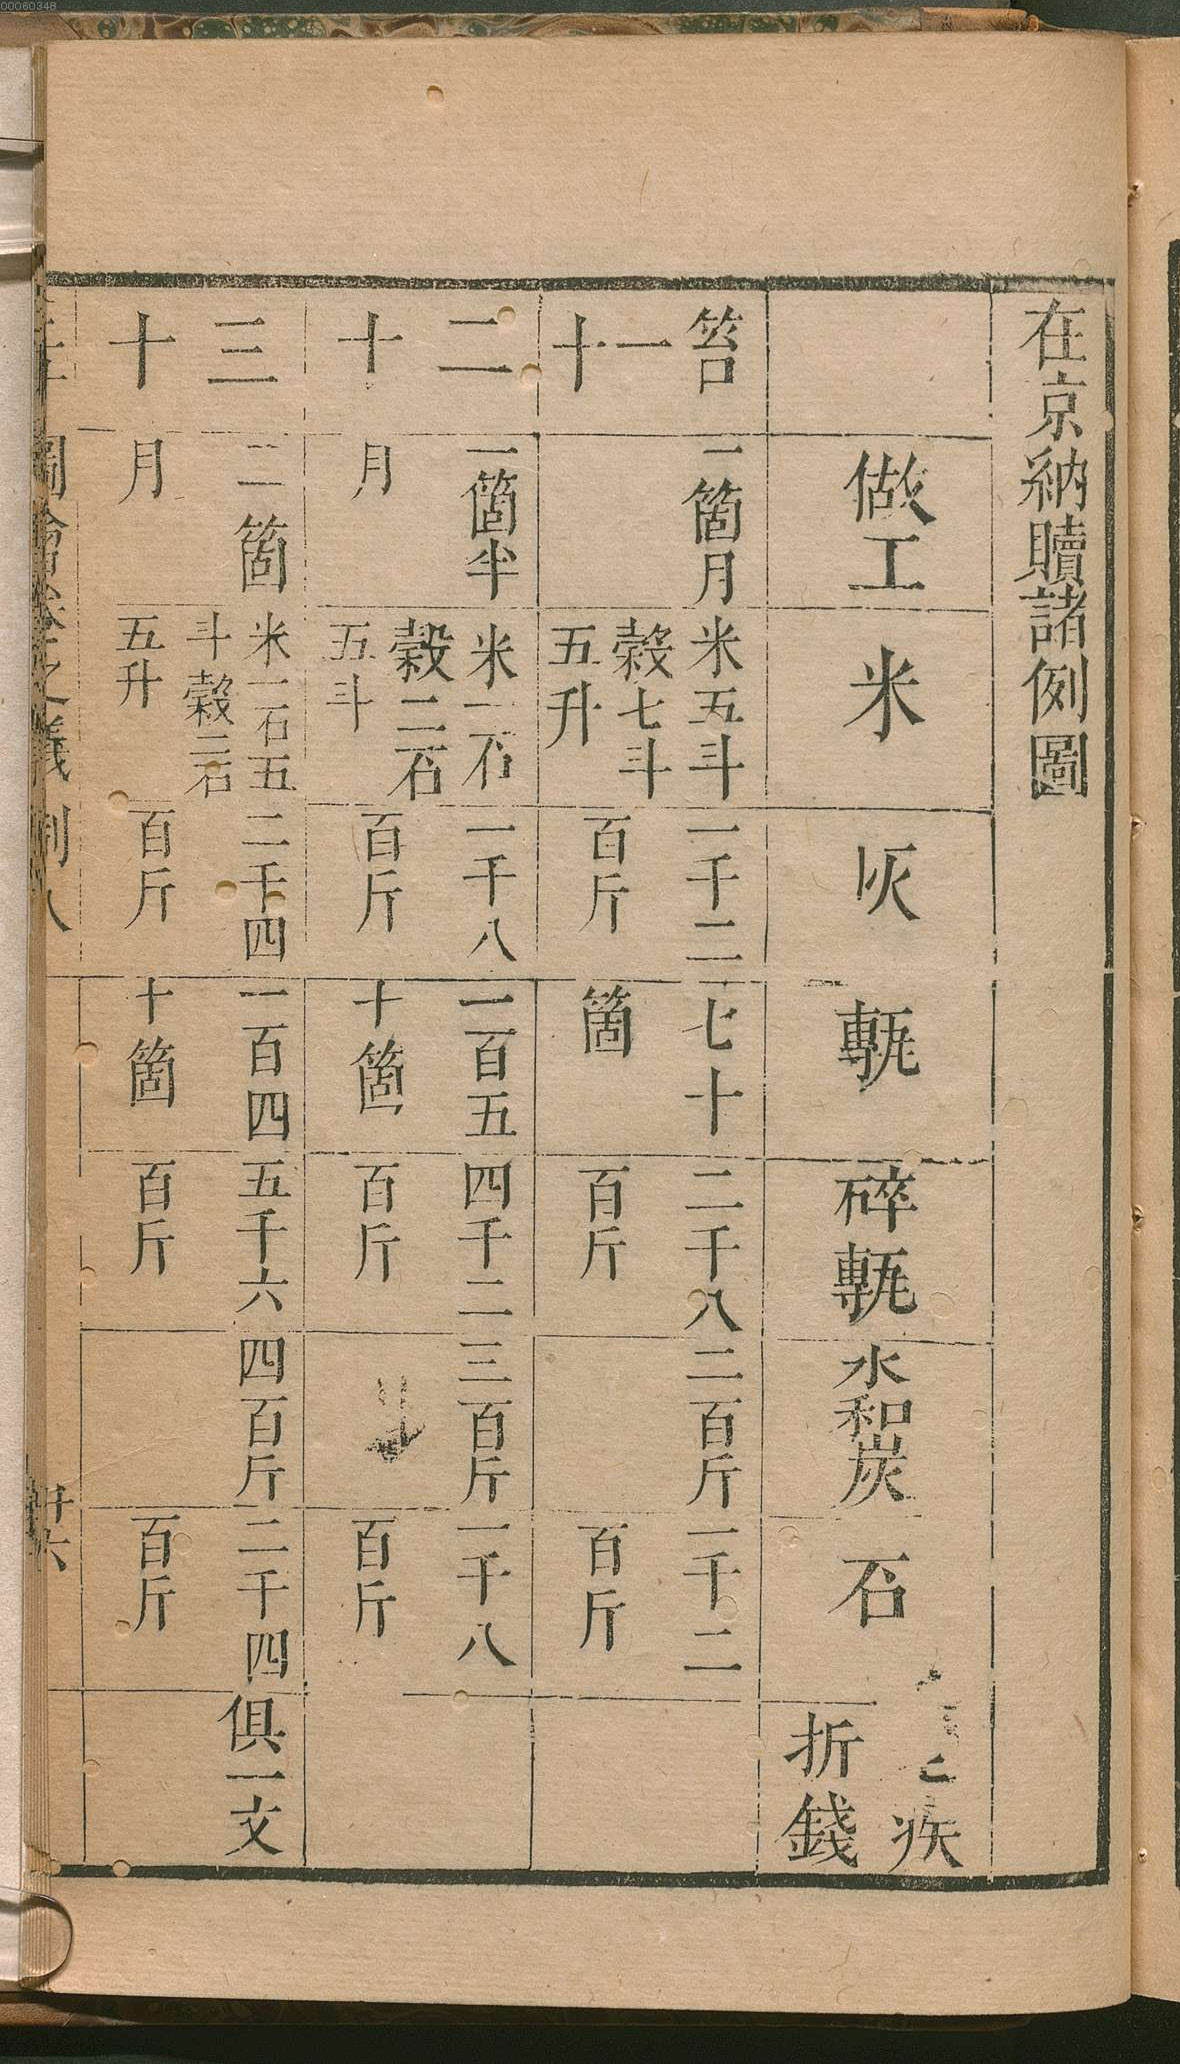 00060348
在京納贖諸例圖
做工
米
灰
甎
碎甎
水和炭
石
疾
折錢
笞一十
一箇月
米五斗
穀七斗
五升
一千二
百斤
七十
箇
二千八
百斤
二百斤
一千二
百斤
二十
一箇半
月
米一石
穀二石
五斗
一千八
百斤
一百五
十箇
四千二
百斤
三百斤
一千八
百斤
三十
二箇
月
米一石五
斗穀二石
五升
二千四
百斤
一百四
十箇
五千六
百斤
四百斤
二千四
百斤
俱一文